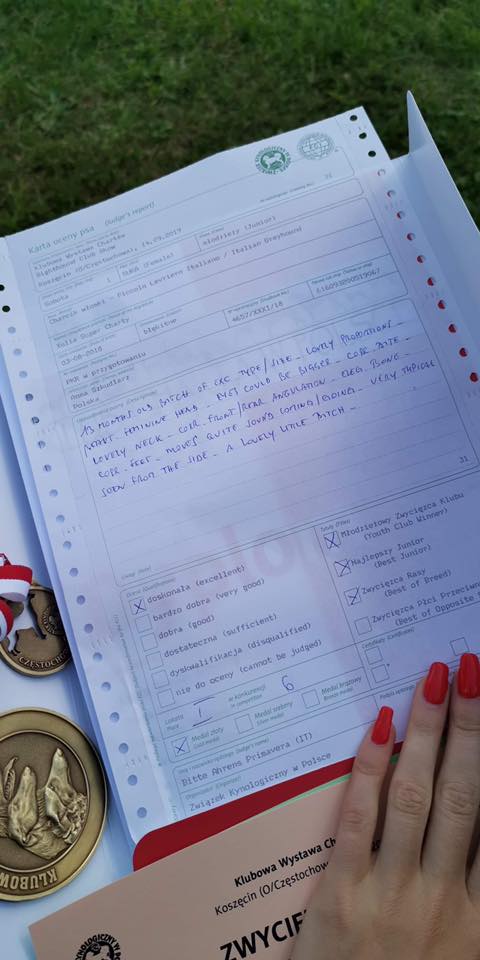 Karta oceny psa (Judge's report)
Klubowa Wystawa Chartów
Sighthound Club Show
Koszęcin (O/Częstochowa), 14.09.2019
młodzieży (Junior)
Sobota
1
SUKA (Female)
31
Charcik włoski - Piccolo Levriero Italiano / Italian Greyhound
Super Charty
błękitne
4657/XXXI/18
03-08-2018
PKR w przygotowaniu
Anna Szkudlarz
Polska
13 MONTHS OLD BITCH OF EXC TYPE/SIZE - LOVELY PROPORTIONS -
FEMININE HEAD - EYES COULD BE BIGGER - CORR. BITE -
LOVELY NECK - CORR. FRONT/REAR ANGULATION - ELEG. BONE -
CORR. FEET - MOVES QUITE SOUND COMING/GOING - VERY TYPICAL
SEEN FROM THE SIDE - A LOVELY LITTLE BITCH -
31
Ocena (Qualification)
doskonała (excellent)
bardzo dobra (very good)
dobra (good)
dostateczna (sufficient)
dyskwalifikacja (disqualified)
nie do oceny (cannot be judged)
Tytuły (Titles)
Młodzieżowy Zwycięzca Klubu
(Youth Club Winner)
Najlepszy Junior
(Best Junior)
Zwycięzca Rasy
(Best of Breed)
Zwycięzca Płci Przeciwn
(Best of Opposite s
Certyfikaty (Certificates)
Lokata
Place
I
w konkurencji
in competition
6
Medal złoty
Gold medal
Medal srebrny
Silver medal
Medal brązowy
Bronze medal
Bitte Ahrens Primavera (IT)
Organizator (Organizer)
Związek Kynologiczny w Polsce
CZĘSTOCHO
KLUBOW
Klubowa Wystawa Ch
Koszęcin (O/Częstochow
ZWYCIĘ